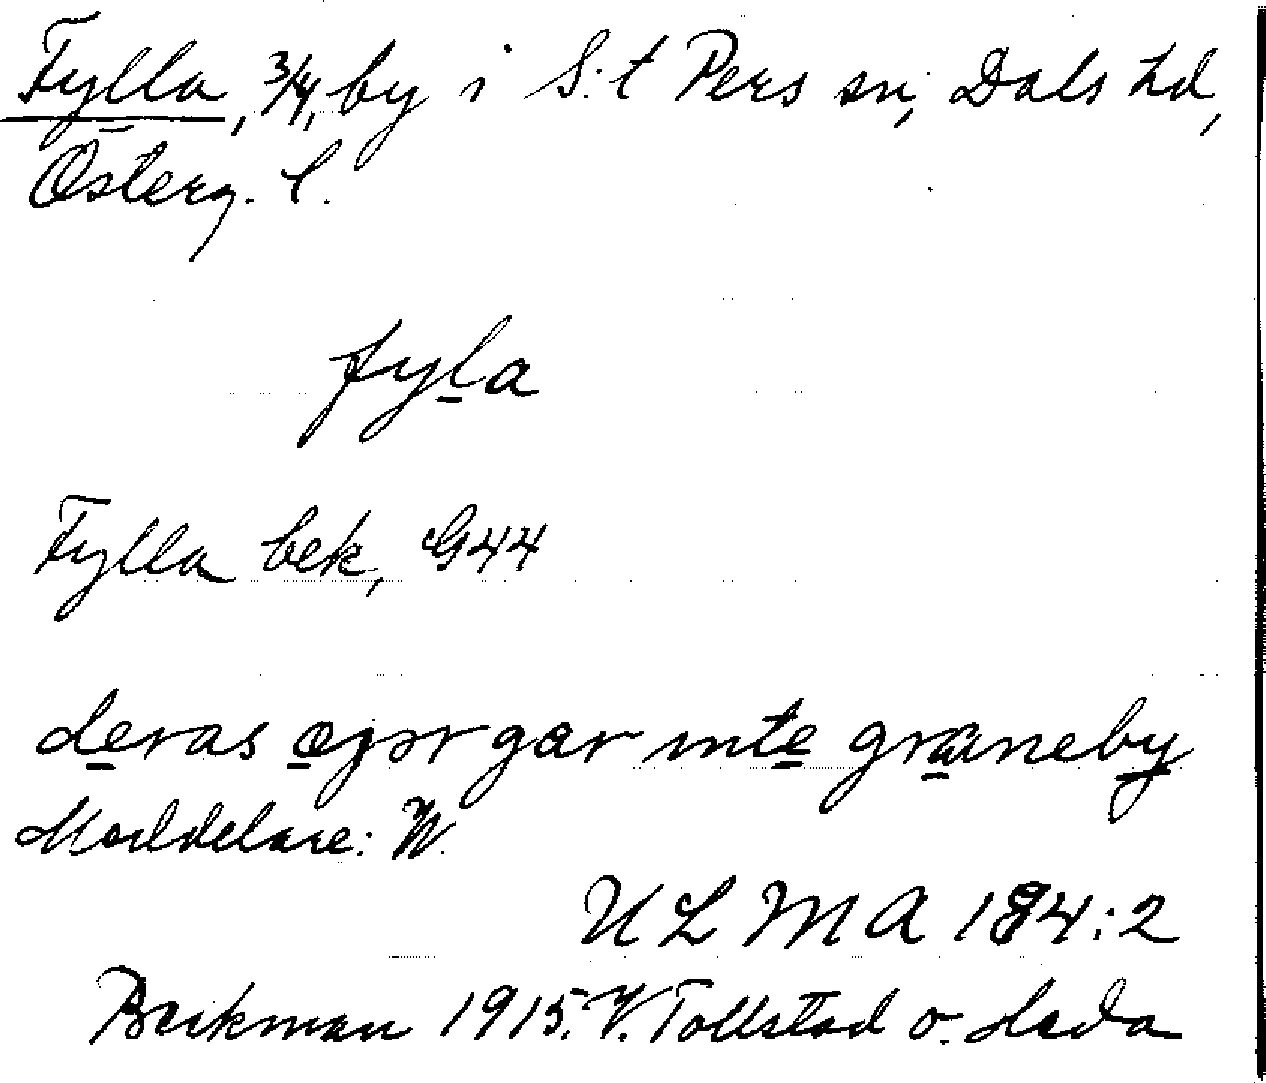 Fylla, 3/4, by i S:t Pers sn, Dals hd,
Österg. l.
fyla
Fylla bek, G44
deras ojor gar inte graneby
Meddelare: W.
ULMA 184:2
Beckman 1915. V. Tollstad o. Heda